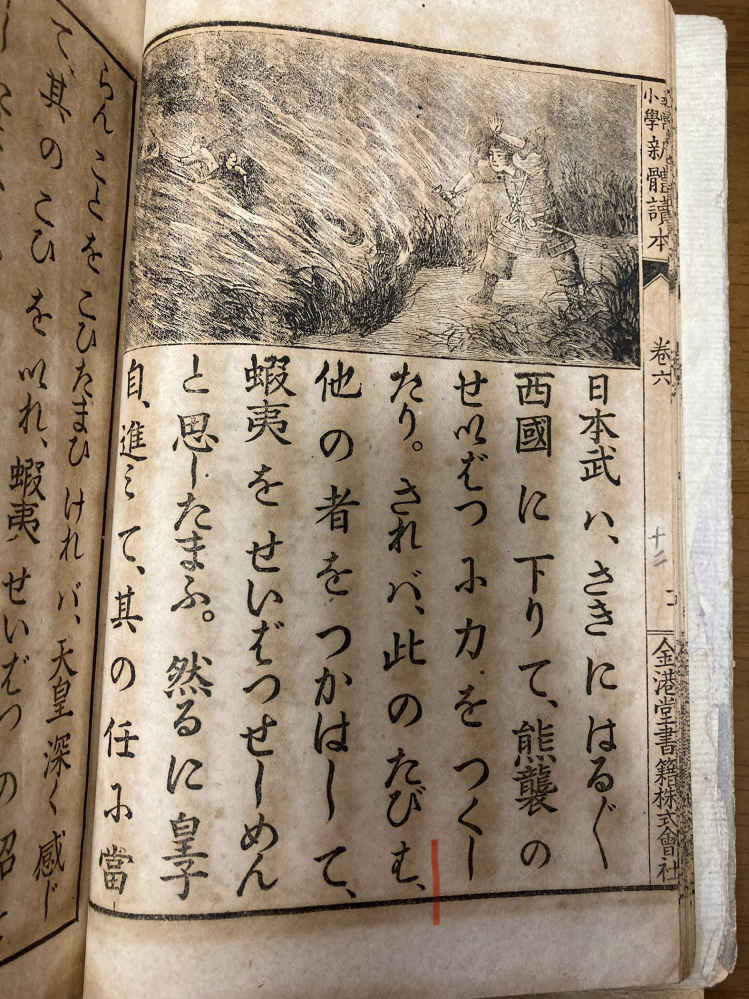 尋常小學新體讀本
巻六
十二
金港堂書籍株式會社
日本武ハ、さきにはる〴〵
西國に下りて、熊襲の
せいばつに力をつくし
たり。されバ、此のたびむ、
他の者をつかはして、
蝦夷をせいばつせしめん
と思したまふ。然るに皇子
自、進ミて、其の任に當
らんことをこひたまひけれバ、天皇深く感じ
て、其のこひをいれ、蝦夷せいばつの詔